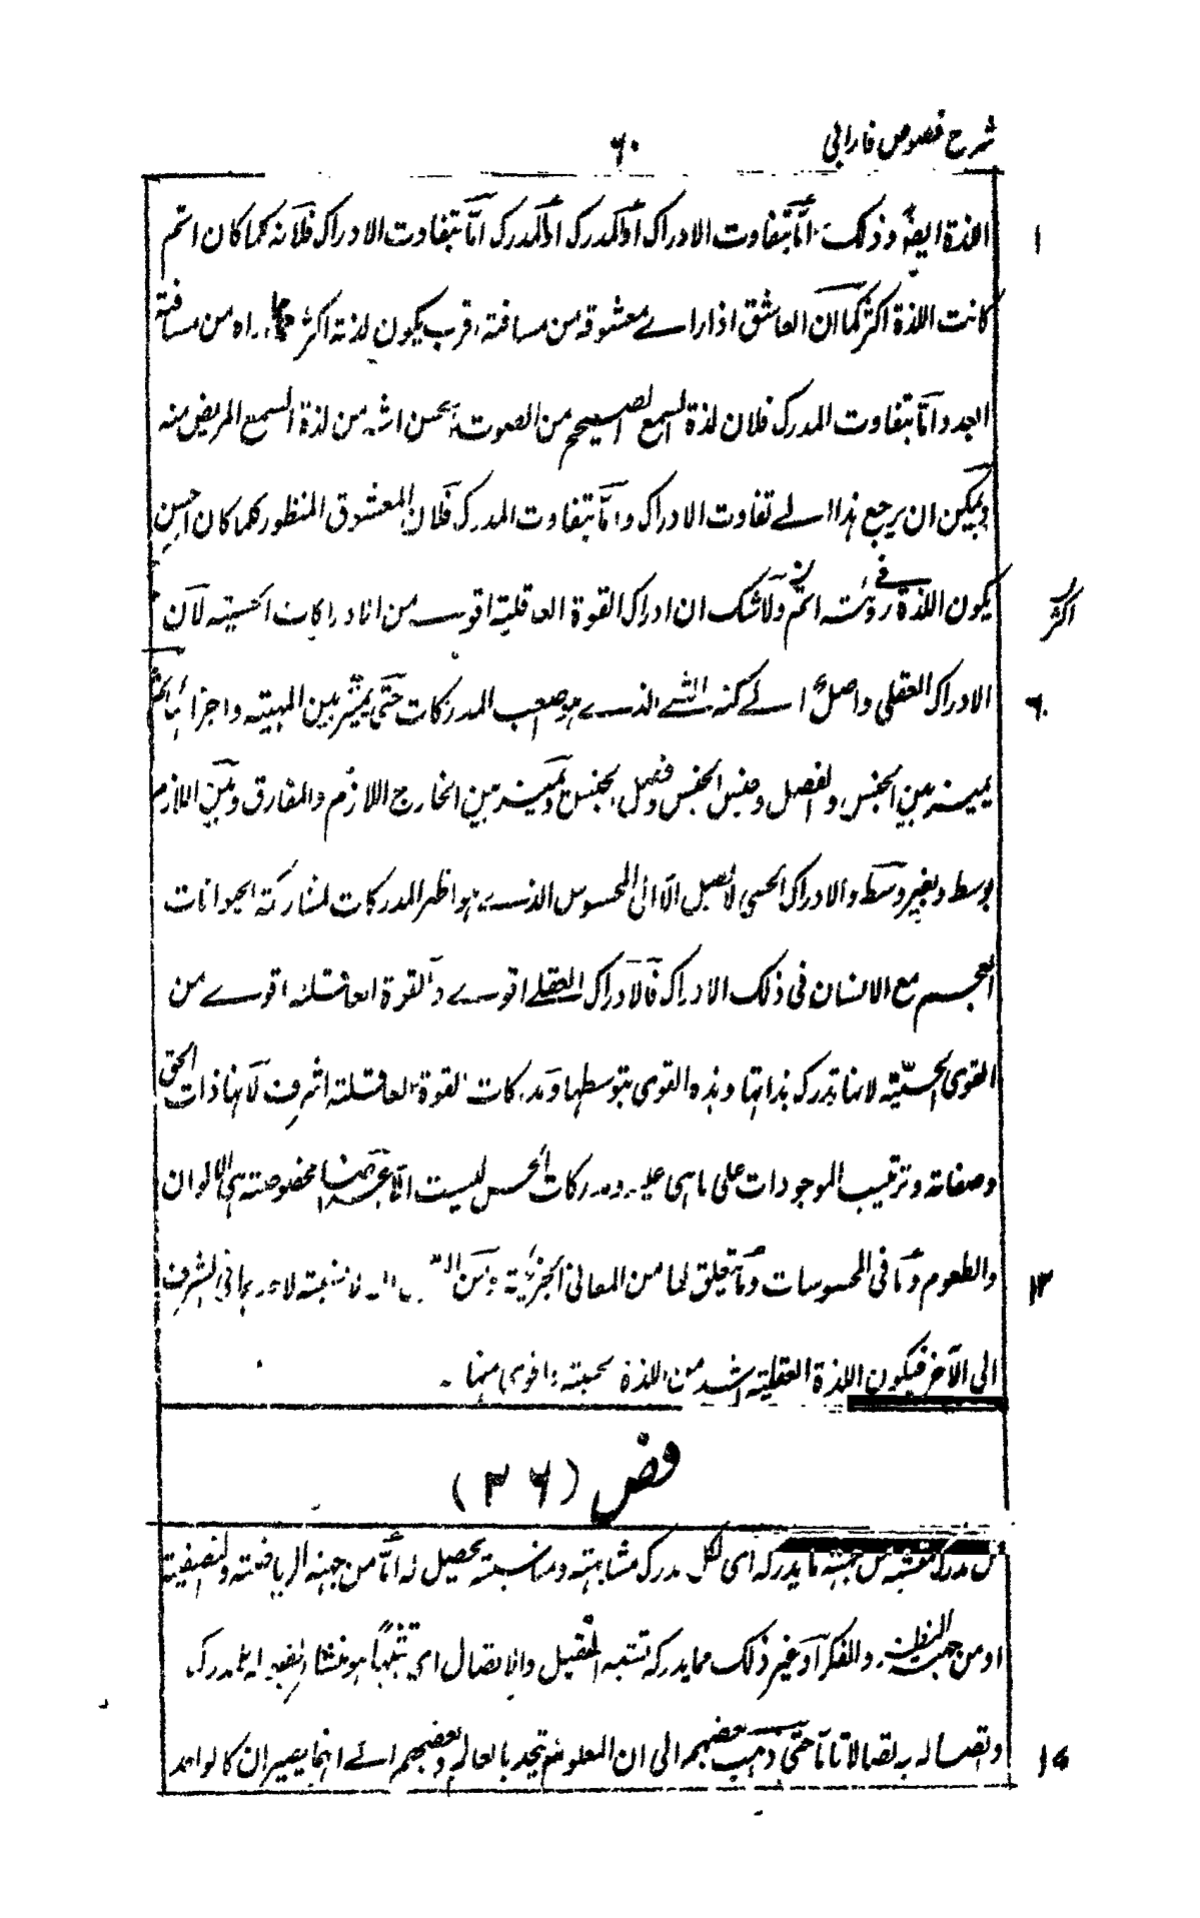 شرح فصوص فارابی
۶۰
اللذة ايضًا وذلك امّا بتفاوت الادراك أو المدرِك او المدرَك امّا بتفاوت الادراك فلانه كلما كان اتم
۱
كانت اللذة اكثر كما ان العاشق اذا راے معشوقه من مسافة اقرب يكون لذته اكثر مما راه من مسافة
ابعد وامّا بتفاوت المدرك فلان لذة السمع الصحيح من الصوت الحسن اشد من لذة السمع المريض منه
ويمكن ان يرجع هذا الے تفاوت الادراك وامّا بتفاوت المدرك فلان المعشوق المنظور كلما كان احسن
يكون اللذة فے رؤيته اتم ولاشك ان ادراك القوة العاقلية اقوے من الادراكات الحسية لان
اكثر
الادراك العقلى واصل الے كنه الشے الذے هو اصعب المدركات حتى يميّز بين المهية واجزائها ثم
۶
يميز بين الجنس والفصل وجنس الجنس وفصل الجنس ويميز بين الخارج اللازم والمفارق وبين اللازم
بوسط وبغير وسط والادراك الحسى لا يصل الا الى المحسوس الذے هو اظهر المدركات لمشاركة الحيوانات
العجم مع الانسان فى ذلك الادراك فالادراك العقلے اقوے والقوة العاقلة اقوے من
القوى الحسّية لانها تدرك بذاتها وهذه القوى بتوسطها ومدركات القوة العاقلة اشرف لانها ذات الحق
وصفاته وترتيب الموجودات على ماهى عليه ومدركات الحس ليست الا اعراضا مخصوصة هى الالوان
والطعوم وما فى المحسوسات وما يتعلق لها من المعانى الجزئية ومن لا نسبة لاحدهما فى الشرف
۱۲
الى الآخر فيكون اللذة العقلية اشد من اللذة الحسية واقوى منها۔
فص (۲۶)
كل مدرك متشبه من جهة ما يدركه اى لكل مدرك مشابهة ومناسبة يحصل له امّا من جهة الرياضة والتصفية
او من جهة النظر والفكر او غير ذلك مما يدركه تشبه التقبل والاتصال اى تشبها هو منشأ لقبوله لمدرك
واتصاله به اتصالا تامّا حتى ذهب بعضهم الى ان المعلوم يتحد بالعالم وبعضهم الے انهما يصيران كالواحد
۱۵